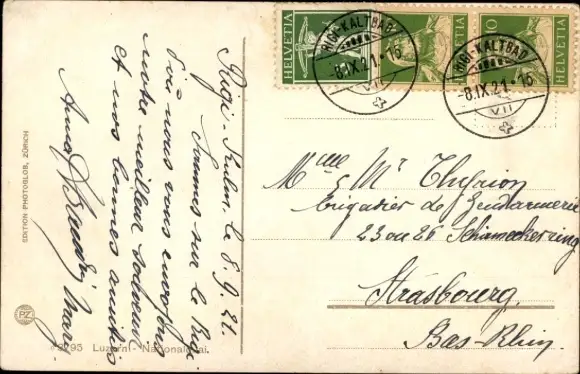 Rigi-Kulm, le 8.9.21.
Sommes sur le Rigi
d'où nous vous envoyons
notre meilleur souvenir
et nos bonnes amitiés
Anna
EDITION PHOTOGLOB, ZÜRICH
PZ
Luzern - Nationalquai.
HELVETIA
HELVETIA
10
HELVETIA
RIGI-KALTBAD
-8.IX.21-15
VII
RIGI-KALTBAD
-8.IX.21-15
VII
Mme & Mr
brigadier de Gendarmerie
23 ou 26 Schirmeckerring
Strasbourg
Bas-Rhin